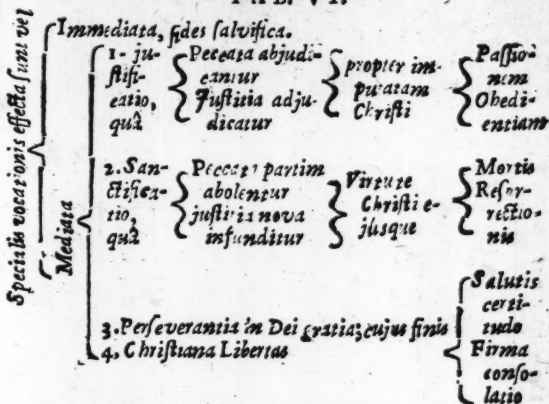 Specialis vocationis effecta sunt vel
Immediata, fides salvifica.
Mediata
1. justifi-
catio,
quâ
Peccata abjudi-
cantur
Justitia adju-
dicatur
propter im-
putatam
Christi
Passio-
nem
Obedi-
entiam
2. San-
ctifica-
tio,
quâ
Peccata partim
abolentur
justitia nova
infunditur
Virtute
Christi e-
jusque
Mortis
Resur-
rectio-
nis
3. Perseverantia in Dei gratia; cujus finis
4. Christiana Libertas
Salutis
certi-
tudo
Firma
conso-
latio